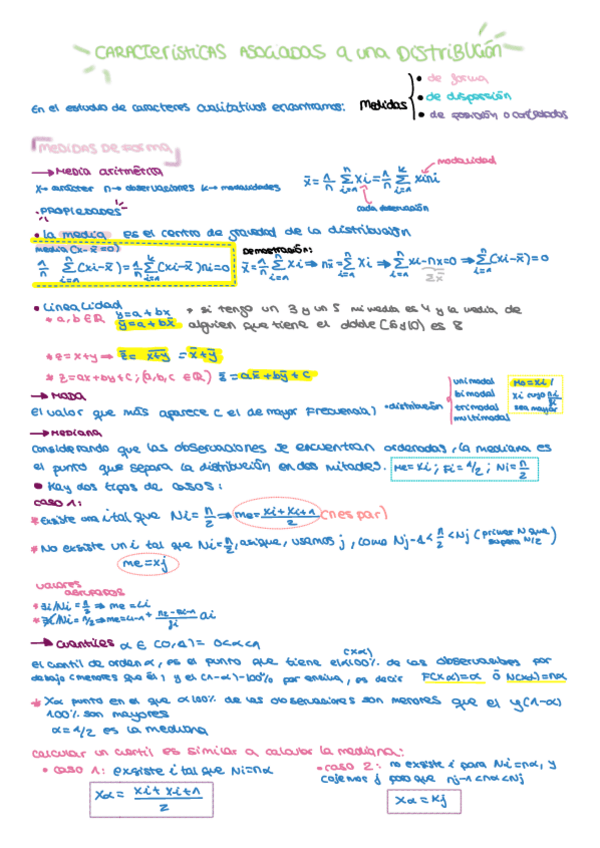 CARACTERÍSTICAS ASOCIADAS A UNA DISTRIBUCIÓN
En el estudio de caracteres cualitativos encontramos: Medidas
• de forma
• de dispersión
• de posición o centradas
MEDIDAS DE FORMA
→ Media aritmética
x → carácter n → observaciones k → modalidades
x̄ = 1/n Σ(i=1, n) xi = 1/n Σ(i=1, k) xi ni
modalidad
cada observación
• PROPIEDADES
• la media es el centro de gravedad de la distribución
media (x - x̄ = 0)
1/n Σ(i=1, n) (xi - x̄) = 1/n Σ(i=1, k) (xi - x̄) ni = 0
Demostración:
x̄ = 1/n Σ(i=1, n) xi ⇒ nx̄ = Σ(i=1, n) xi ⇒ Σ(i=1, n) xi - nx = 0 ⇒ Σ(i=1, n) (xi - x̄) = 0
Σx̄
• Linealidad
* a, b ∈ ℝ y = a + bx
ȳ = a + bx̄
* si tengo un 3 y un 5 mi media es 4 y la media de
alguien que tiene el doble (6 y 10) es 8
* z = x + y → z̄ = x+y = x̄ + ȳ
* z = ax + by + c; (a, b, c ∈ ℝ) z̄ = ax̄ + bȳ + c
→ MODA
El valor que más aparece (el de mayor frecuencia) • distribución
unimodal
bimodal
trimodal
multimodal
Mo = xi /
xi cuyo ni/
sea mayor
→ Mediana
Considerando que las observaciones se encuentran ordenadas, la mediana es
el punto que separa la distribución en dos mitades. Me = xi ; Fi = 1/2 ; Ni = n/2
• Hay dos tipos de casos:
caso 1:
* Existe una i tal que Ni = n/2 ⇒ me = (xi + xi+1)/2 (n es par)
* No existe un i tal que Ni = n/2, así que, usamos j, como Nj-1 < n/2 < Nj (primer N que supera N/2)
me = xj
valores
agrupados
→ Cuantiles α ∈ (0,1) = 0<α<1
El cuantil de orden α, es el punto que tiene el α100% de las observables por
(xα)
debajo (menores que él) y el (1-α)·100% por encima, es decir F(xα) = α ó N(xα) = nα
* xα punto en el que α100% de las observaciones son menores que el y (1-α)
100% son mayores
α = 1/2 es la mediana
calcular un cuantil es similar a calcular la mediana:
• caso 1: exsiste i tal que Ni = nα
xα = (xi + xi+1)/2
• caso 2: no existe i para Ni = nα, y
cojemos j para que nj-1 < nα < Nj
xα = xj